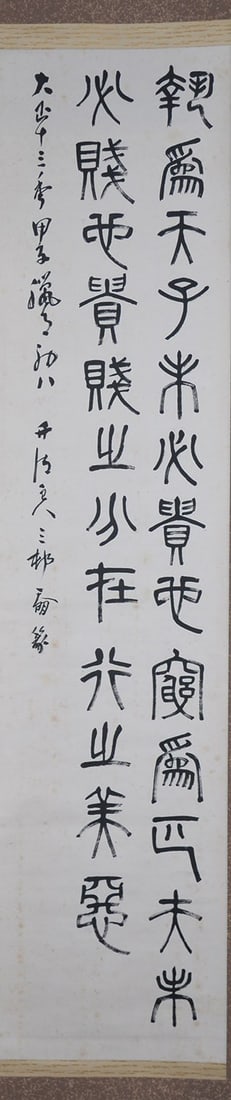 埶爲天子未必貴也窮爲匹夫未
必賤也貴賤之分在行之美惡
大正十三年甲子臘月初八 三邨 篆